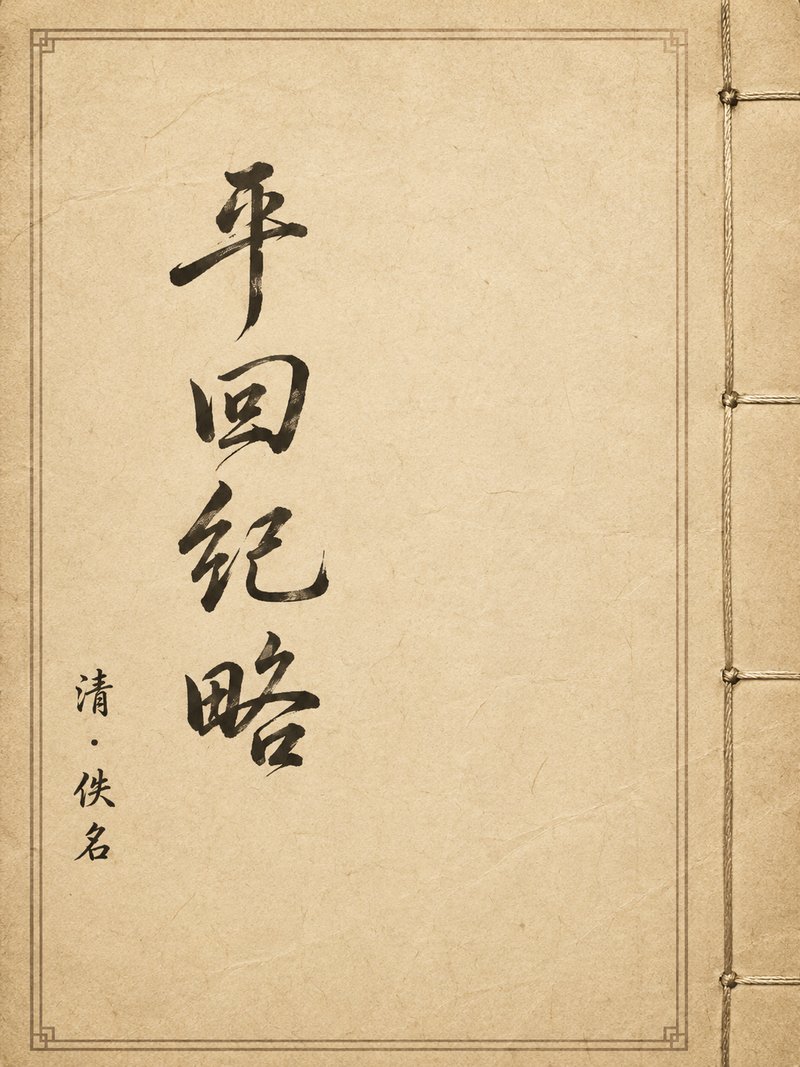 平回紀略
清·佚名